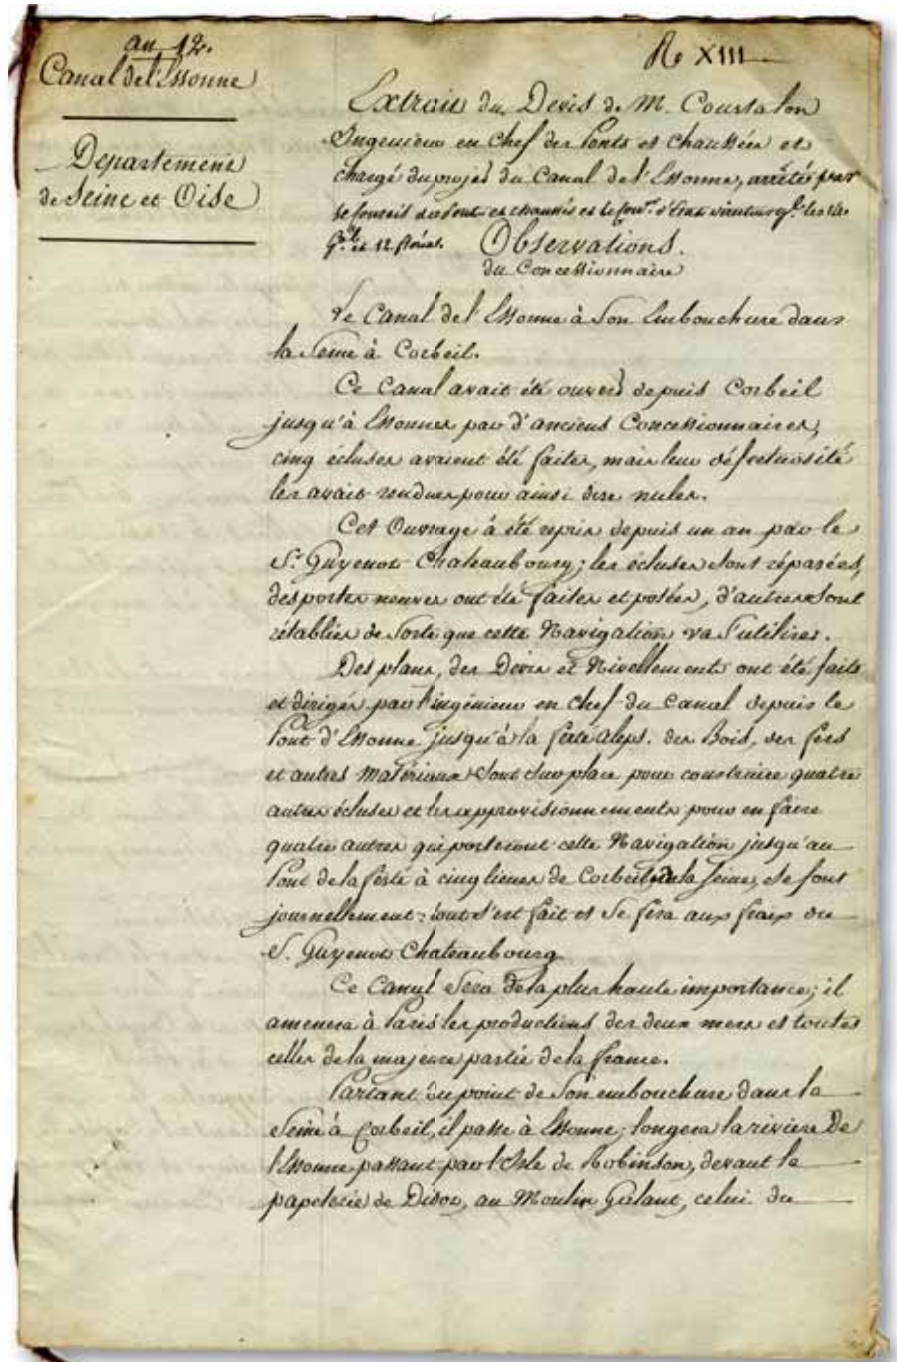 an 12.
Canal de l'Essonne
Departement
de Seine et Oise
R XIII
Extrait du Devis de M. Courtalon
Ingenieur en chef des Ponts et chaussées et
chargé du projet du Canal de l'Essonne, arrêtés par
le Conseil des Ponts et chaussés et le d'Etat les
et 12 floréal.
Observations.
du Concessionnaire
Le Canal de l'Essonne à Son Embouchure dans
la Seine à Corbeil.
Ce Canal avait été ouvert depuis Corbeil
jusqu'à Essonnes par d'anciens Concessionnaires,
cinq écluses avaient été faites, mais leur défectuosité
les avait rendues pour ainsi dire nules.
Cet Ouvrage à été repris depuis un an par le
S.r Guyenot Chateaubourg; les écluses sont réparées,
des portes neuves ont été faites et posées, d'autres sont
rétablies de Sorte que cette Navigation va S'utiliser.
Des plans, des Devis et Nivellements ont été faits
et dirigés par l'ingénieur en chef du Canal depuis le
Pont d'Essonne jusqu'à la ferté aleps. des Bois, des fers
et autres Matériaux sont sur place pour construire quatre
autres écluses et les approvisionnements pour en faire
quatre autres qui porteront cette Navigation jusqu'au
Pont de la ferté à cinq lieues de Corbeil de la Seine, se font
journellement: tout s'est fait et Se fera aux frais du
S. Guyenot Chateaubourg
Ce Canal Sera de la plus haute importance; il
amenera à Paris les productions des deux mers et toutes
celles de la majeure partie de la france.
Partant du point de Son embouchure dans la
Seine à Corbeil, il passe à Essonne, longera la riviere De
l'Essonne passant par l'Isle de Robinson, devant la
papeterie de Didot, au Moulin Galant, celui du